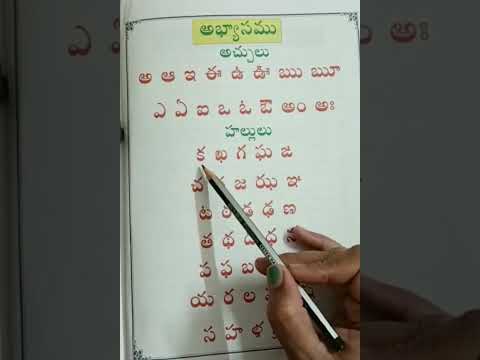 అభ్యాసము
అచ్చులు
అ ఆ ఇ ఈ ఉ ఊ ఋ ౠ
ఎ ఏ ఐ ఒ ఓ ఔ అం అః
హల్లులు
క ఖ గ ఘ ఙ
చ జ ఝ ఞ
ట ఠ డ ఢ ణ
త థ ద ధ
ప ఫ బ
య ర ల
స హ ళ